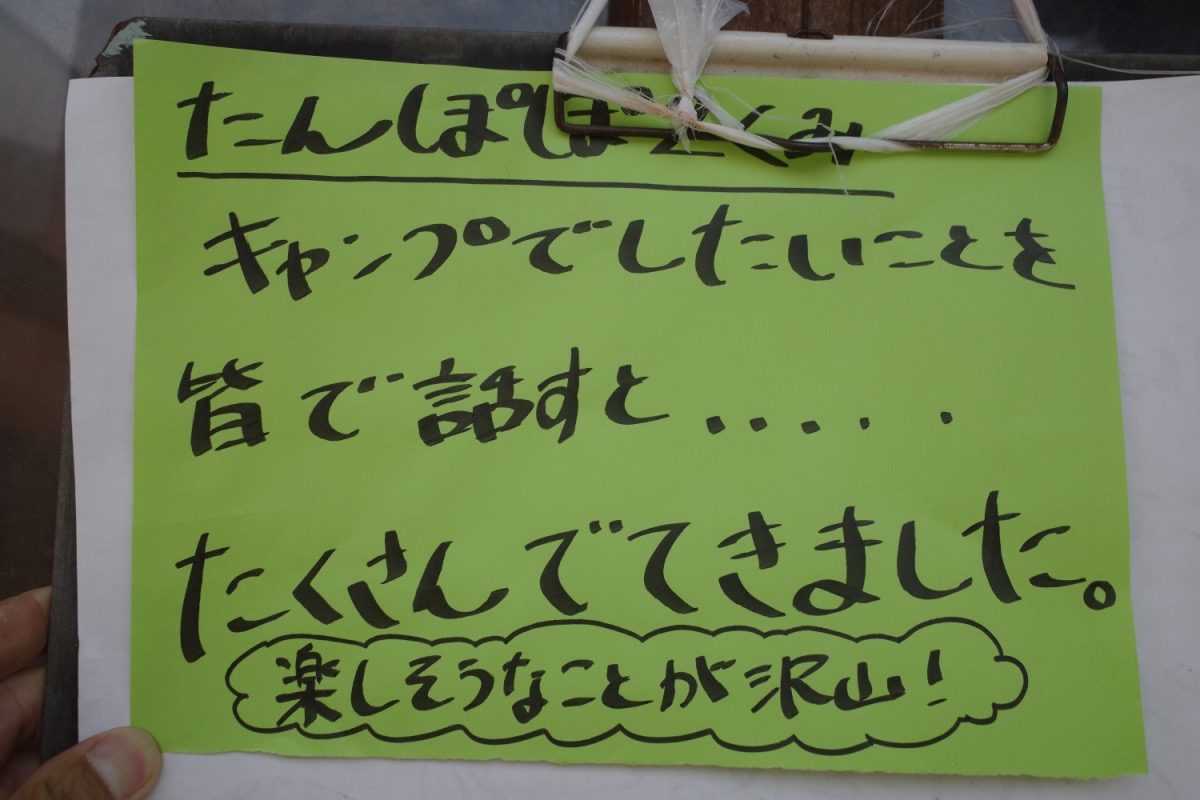 たんぽぽぐみ
キャンプでしたいことを
皆で話すと.....
たくさんでてきました。
楽しそうなことが沢山！